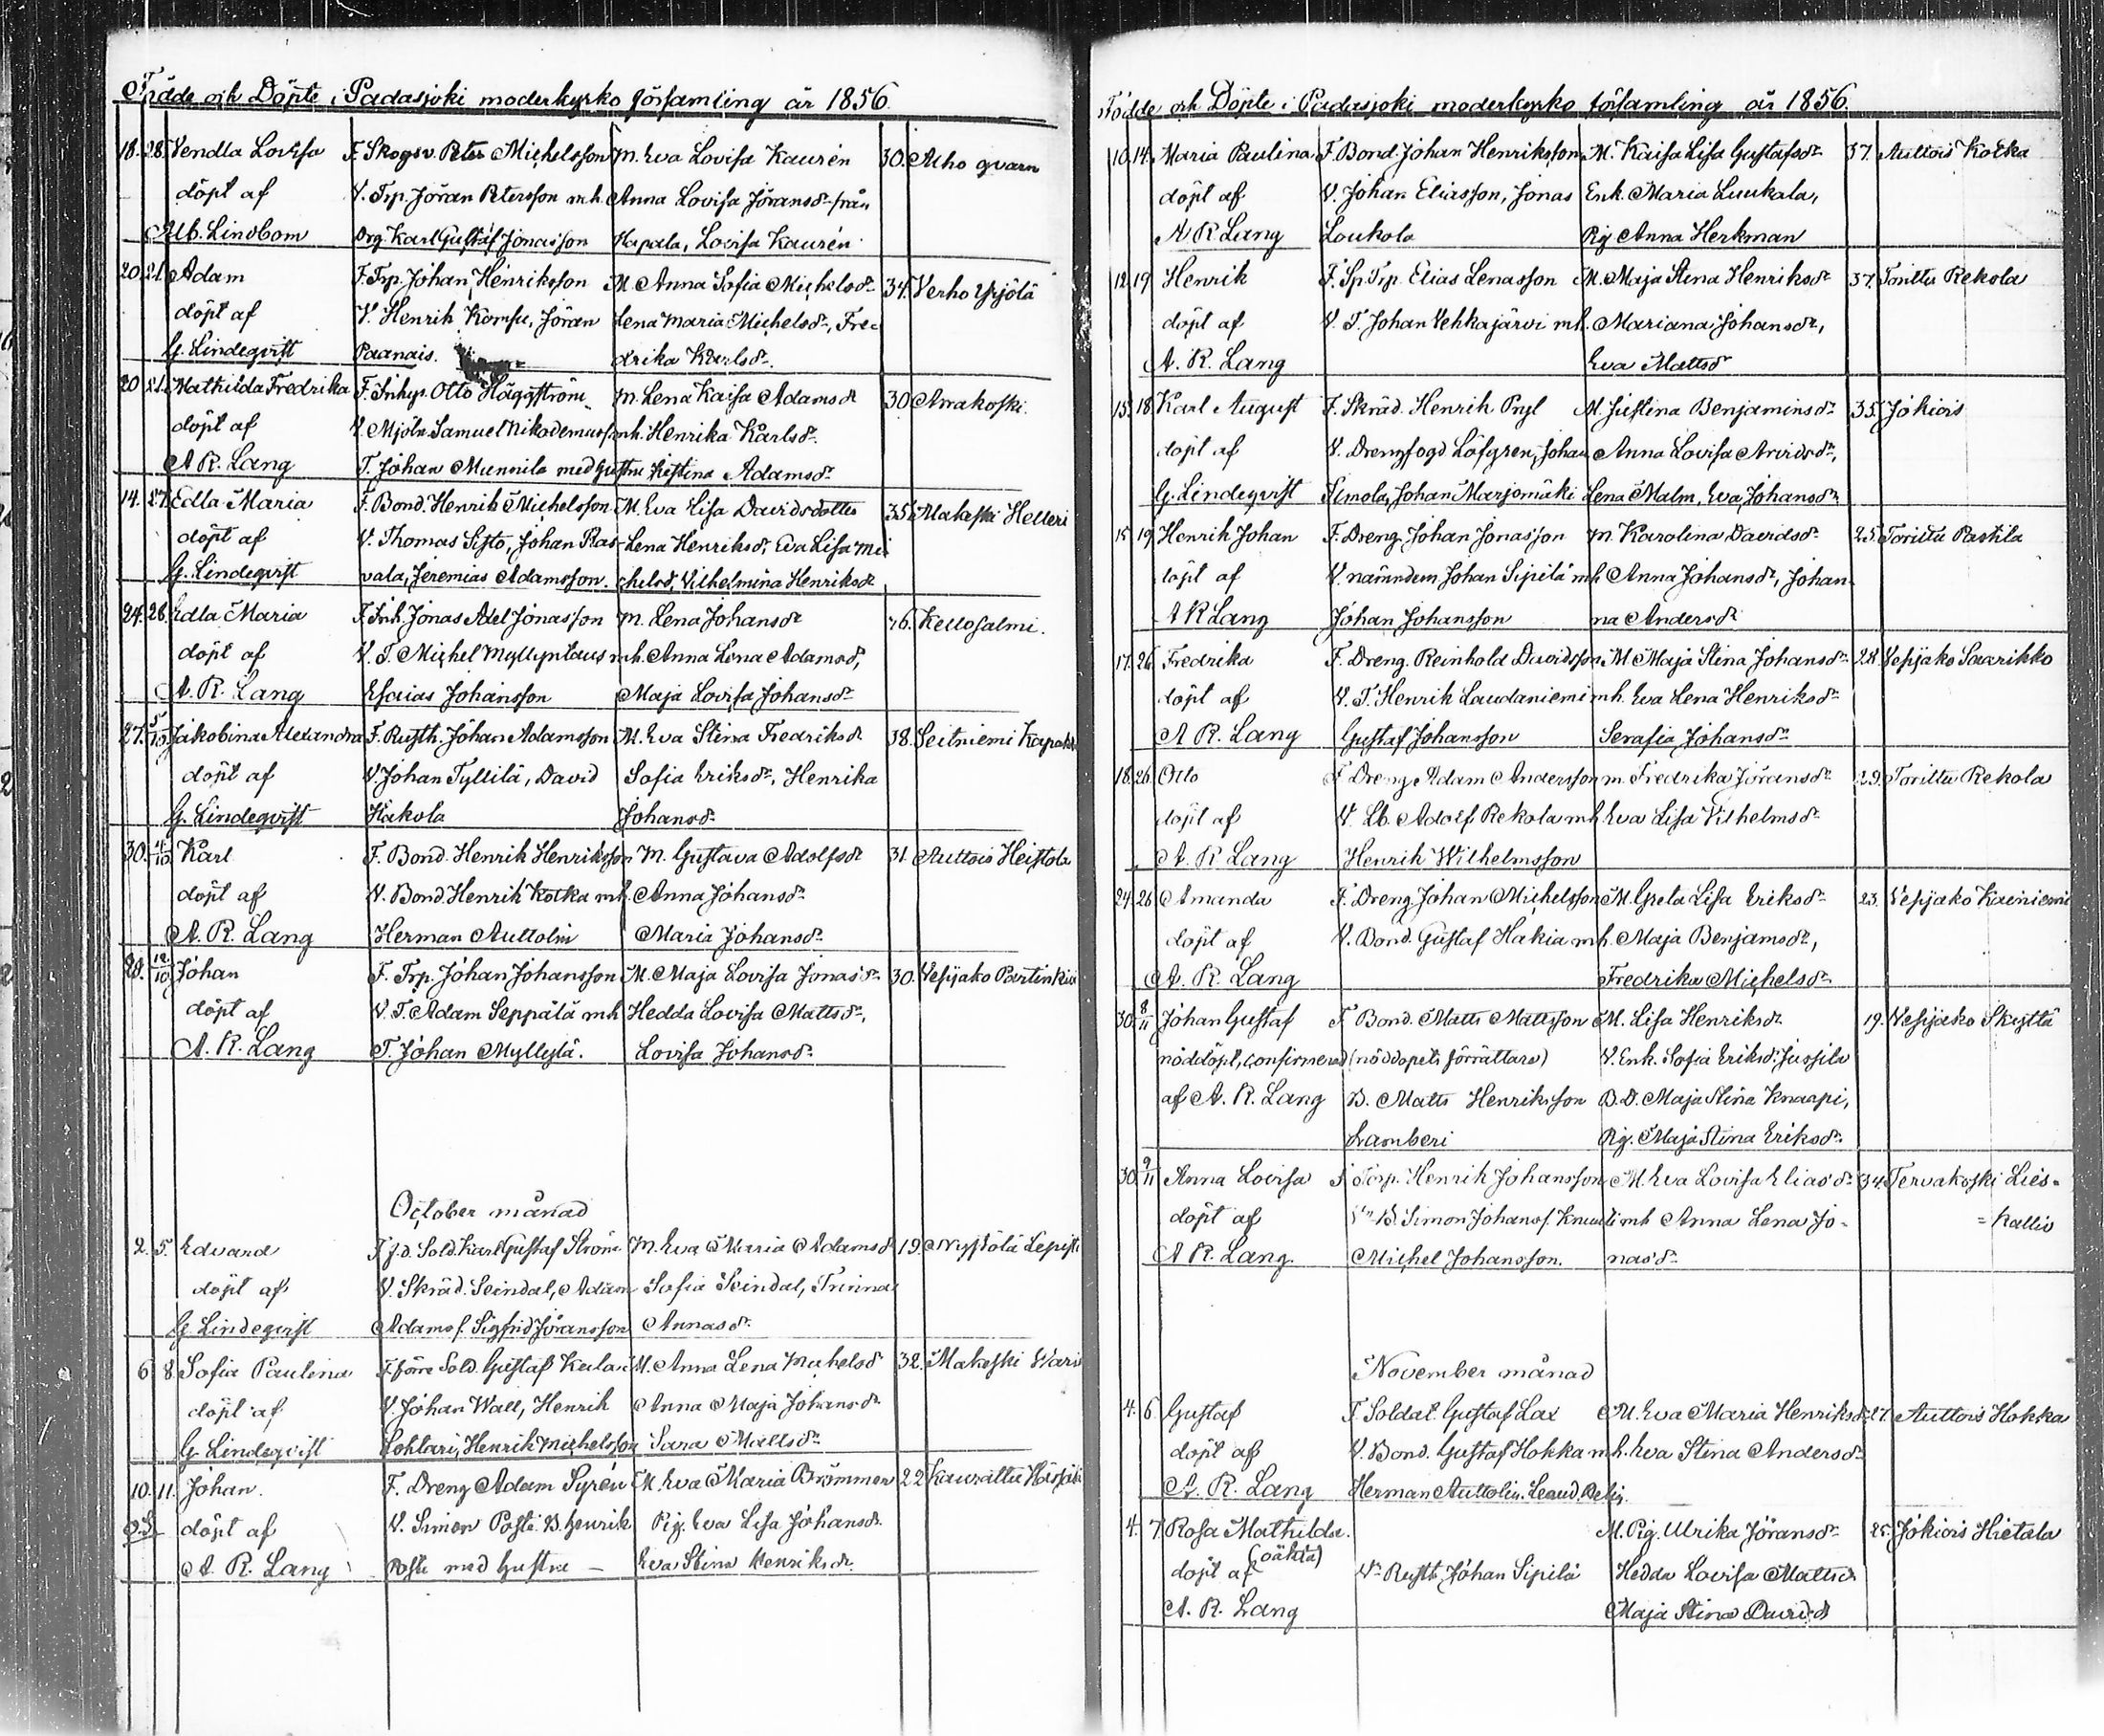 Födde och Döpte i Padasjoki moderkyrko församling år 1856.
18. 28. Vendla Lovisa F. Skogsv. Peter Michelsson M. Eva Lovisa Kaurén 30. Arho qvarn
döpt af V. Trp. Jöran Petersson m.h. Anna Lovisa Jöransdr från
Ab. Lindbom Drg. Karl Gustaf Jonasson Kapala, Lovisa Kaurén
20. 21. Adam F. Trp. Johan Henriksson M. Anna Sofia Michelsdr 34. Verho Yrjölä
döpt af V. Henrik Jöran Lena Maria Michelsdr, Fre
G. Lindeqvist Paanais. drika Karlsdr.
20. 21. Mathilda Fredrika F. Inhys. Otto Häggström M. Lena Kaisa Adamsdr 30. Arrakoski.
döpt af V. Mjöln. Samuel Nikodemusson m.h. Henrika Karlsdr.
A R. Lang T. Johan Munnila med hustru Kristina Adamsdr
14. 27. Edla Maria F. Bond. Henrik Michelsson M. Eva Lisa Davidsdotter 35. Makeski Helleri
döpt af V. Thomas Sisto, Johan Ras- Lena Henriksdr, Eva Lisa Mi
G. Lindeqvist vala, Jeremias Adamsson. chelsdr, Vilhelmina Henriksdr
24. 28. Edla Maria F. Inh. Jonas Abel Jonasson M. Lena Johansdr 26. Kellosalmi.
döpt af V. T. Michel Myllyntaus m.h. Anna Lena Adamsdr,
A. R. Lang Esaias Johansson Maja Lovisa Johansdr
27. 5/10 Jakobina Alexandra F. Rusth. Johan Adamsson M. Eva Stina Fredriksdr 38. Seitniemi
döpt af V. Johan Tyllilä, David Sofia Eriksdr, Henrika
G. Lindeqvist Hakola Johansdr
30. 4/10 Karl F. Bond. Henrik Henriksson M. Gustava Adolfsdr 31. Auttois Heistola
döpt af V. Bond. Henrik Kotka m.h. Anna Johansdr
A. R. Lang Herman Auttolin Maria Johansdr
28. 12/10 Johan F. Trp. Johan Johansson M. Maja Lovisa Jonasdr 30. Vesijako
döpt af V. T. Adam Seppälä m.h. Hedda Lovisa Mattsdr,
A. R. Lang T. Johan Myllylä. Lovisa Johansdr
October månad
2. 5. Edvard F. f.d. Sold. Karl Gustaf Ström M. Eva Maria Adamsdr 19. Nyystölä
döpt af V. Skräd. Seindal, Adam Sofia Seindal, Trinna
G Lindeqvist Adamss. Sigfrid Jöransson Annasdr
6 8 Sofia Paulina F. förre Sold. Gustaf M. Anna Lena Michelsdr 32. Makeski
döpt af V. Johan Wall, Henrik Anna Maja Johansdr
G. Lindeqvist Lohtari, Henrik Michelsson Sara Mattsdr
10. 11. Johan. F. Dreng Adam Syrén M. Eva Maria Brommer 22
döpt af V. Simon Posti. B. Henrik Pig. Eva Lisa Johansdr.
A. R. Lang Posti med hustru — Eva Stina Henriksdr.
Födde och Döpte i Padasjoki moderkyrko församling år 1856.
10. 14. Maria Paulina F. Bond. Johan Henriksson M. Kaisa Lisa Gustafsdr 37. Auttois Kotka
döpt af V. Johan Eliasson, Jonas Enk. Maria Luukala,
A R Lang Loukola Pig Anna Herkman
12. 19 Henrik F. Sp. Trp. Elias Lenasson M. Maja Stina Henriksdr 37. Torittu Rekola
döpt af V. T. Johan Vehkajärvi m.h. Mariana Johansdr,
A. R. Lang Eva Mattsdr
15. 18 Karl August F. Skräd. Henrik Pryl M. Justina Benjaminsdr 35. Jokiois
döpt af V. Drengfogd Löfgren, Johan Anna Lovisa Arvidsdr,
G. Lindeqvist Simola, Johan Marjomäki Lena Malm, Eva Johansdr
15. 19. Henrik Johan F. Dreng Johan Jonasson M. Karolina Davidsdr 25. Torittu Rastila
döpt af V. nämndem. Johan Sipilä m.h. Anna Johansdr, Johan-
A R Lang Johan Johansson na Andersdr
17. 26 Fredrika F. Dreng. Reinhold Davidsson M Maja Stina Johansdr 28. Vesijako Saarikko
döpt af V. T. Henrik Laudaniemi m.h. Eva Lena Henriksdr
A R. Lang Gustaf Johansson Serafia Johansdr
18. 26. Otto F Dreng Adam Andersson M. Fredrika Jöransdr 29. Torittu Rekola
döpt af V. Lb. Adolf Rekola m.h. Eva Lisa Vilhelmsdr
A. R Lang Henrik Wilhelmsson
24. 26 Amanda F. Dreng Johan Michelsson M. Greta Lisa Eriksdr 23. Vesijako Kainiemi
döpt af V. Bond. Gustaf Hakia m.h. Maja Benjamsdr,
A. R. Lang Fredrika Michelsdr
30. 8/11 Johan Gustaf F Bond. Matts Mattsson M. Lisa Henriksdr 19. Vesijako Skyttä
nöddöpt, confirmerad (nöddopets förrättare) V. Enk. Sofia Eriksdr Jussila
af A. R. Lang B. Matts Henriksson B. D. Maja Stina Knaapi,
Lamberi Pig. Maja Stina Eriksdr
30 9/11 Anna Lovisa F Torp. Henrik Johansson M. Eva Lovisa Eliasdr 34. Tervakoski Lies-
döpt af Vn B. Simon Johanss. m.h. Anna Lena Jo- =kallio
A R. Lang Michel Johansson. nasdr
November månad
4. 6 Gustaf F. Soldat Gustaf Lax M. Eva Maria Henriksdr 27. Auttois Hokka
döpt af V. Bond. Gustaf Hokka m.h. Eva Stina Andersdr
A. R. Lang Herman Auttolin.
4. 7. Rosa Mathilda. M. Pig. Ulrika Jöransdr 25. Jokiois Hietala
(oäkta)
döpt af Vn Rustb Johan Sipilä Hedda Lovisa Mattsdr
A. R. Lang Maja Stina Davidsdr